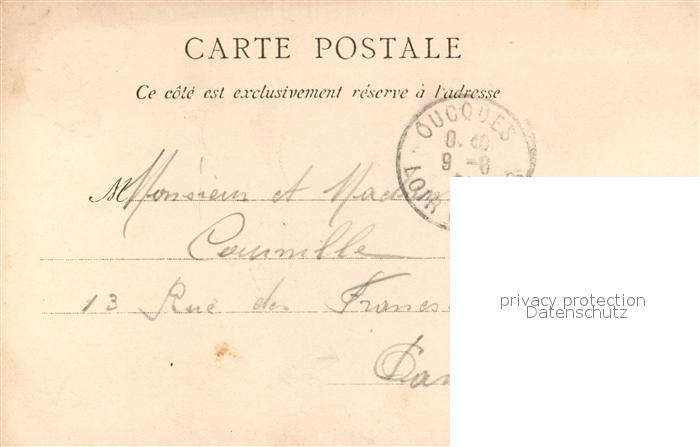 CARTE POSTALE
Ce côté est exclusivement réservé à l'adresse
OUCQUES
9 -8
LOIR
M Monsieur et Mada
13 Rue des Francs
privacy protection
Datenschutz